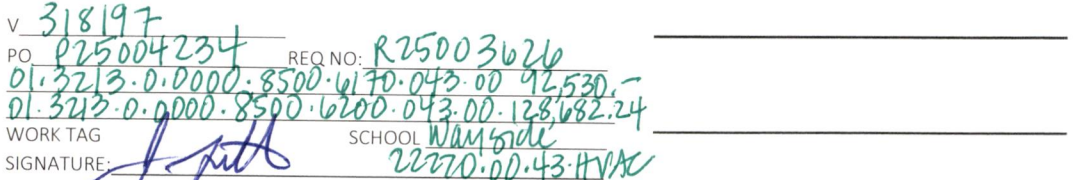 V 318197
PO P25004234 REQ NO: R25003626
01.3213.0.0000.8500.6170.043.00 92,530.-
01.3213.0.0000.8500.6200.043.00.128,682.24
WORK TAG SCHOOL Wayside
SIGNATURE: 22270.00.43.HVAC